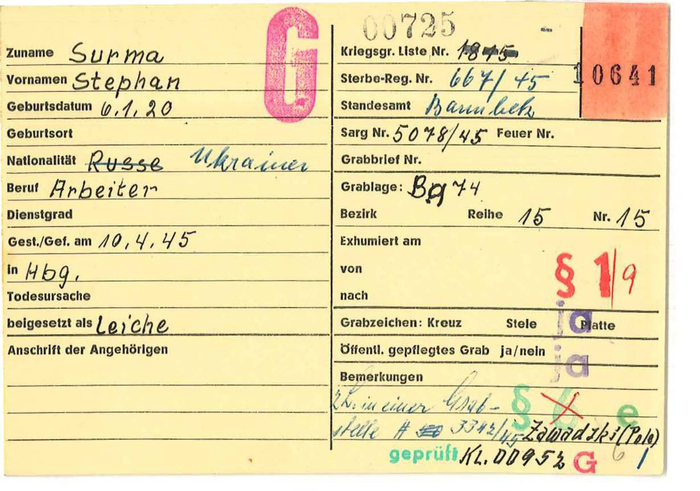 G
00725
10641
Zuname Surma
Vornamen Stephan
Geburtsdatum 6.1.20
Geburtsort
Nationalität Russe Ukrainer
Beruf Arbeiter
Dienstgrad
Gest./Gef. am 10.4.45
in Hbg.
Todesursache
beigesetzt als Leiche
Anschrift der Angehörigen
Kriegsgr. Liste Nr. 1815
Sterbe-Reg. Nr. 667/45
Standesamt Barmbek
Sarg Nr. 5078/45 Feuer Nr.
Grabbrief Nr.
Grablage: Bq 74
Bezirk Reihe 15 Nr. 15
Exhumiert am
von
nach
§ 1/9
Grabzeichen: Kreuz Stele Platte
a
Öffentl. gepflegtes Grab ja/nein
a
Bemerkungen
§ 6 e
in einer Grab-
stelle # 3342/45 Zawadski (Pole)
geprüft KL.00952 G 6 1